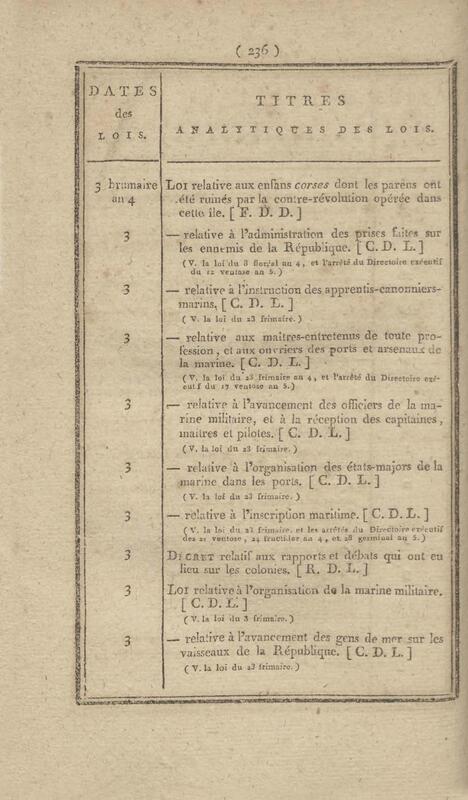 ( 236 )
DATES
des
LOIS.
TITRES
ANALYTIQUES DES LOIS.
3 brumaire
an 4
LOI relative aux enfans corses dont les parens ont
été ruinés par la contre-révolution opérée dans
cette île. [ F. D. D. ]
3
— relative à l'administration des prises faites sur
les ennemis de la République. [ C. D. L. ]
( V. la loi du 8 floréal an 4, et l'arrêté du Directoire exécutif
du 12 ventose an 5. )
3
— relative à l'instruction des apprentis-canonniers-
marins, [ C. D. L. ]
( V. la loi du 23 frimaire. )
3
— relative aux maîtres-entretenus de toute pro-
fession, et aux ouvriers des ports et arsenaux de
la marine. [ C. D. L. ]
( V. la loi du 23 frimaire an 4, et l'arrêté du Directoire exé-
cutif du 17 ventose an 5. )
3
— relative à l'avancement des officiers de la ma-
rine militaire, et à la réception des capitaines,
maîtres et pilotes. [ C. D. L. ]
( V. la loi du 23 frimaire. )
3
— relative à l'organisation des états-majors de la
marine dans les ports. [ C. D. L. ]
( V. la loi du 23 frimaire. )
3
— relative à l'inscription maritime. [ C. D. L. ]
( V. la loi du 23 frimaire, et les arrêtés du Directoire exécutif
des 21 ventose, 24 fructidor an 4, et 28 germinal an 5. )
3
DÉCRET relatif aux rapports et débats qui ont eu
lieu sur les colonies. [ R. D. L. ]
3
LOI relative à l'organisation de la marine militaire.
[ C. D. L. ]
( V. la loi du 3 frimaire. )
3
— relative à l'avancement des gens de mer sur les
vaisseaux de la République. [ C. D. L. ]
( V. la loi du 23 frimaire. )